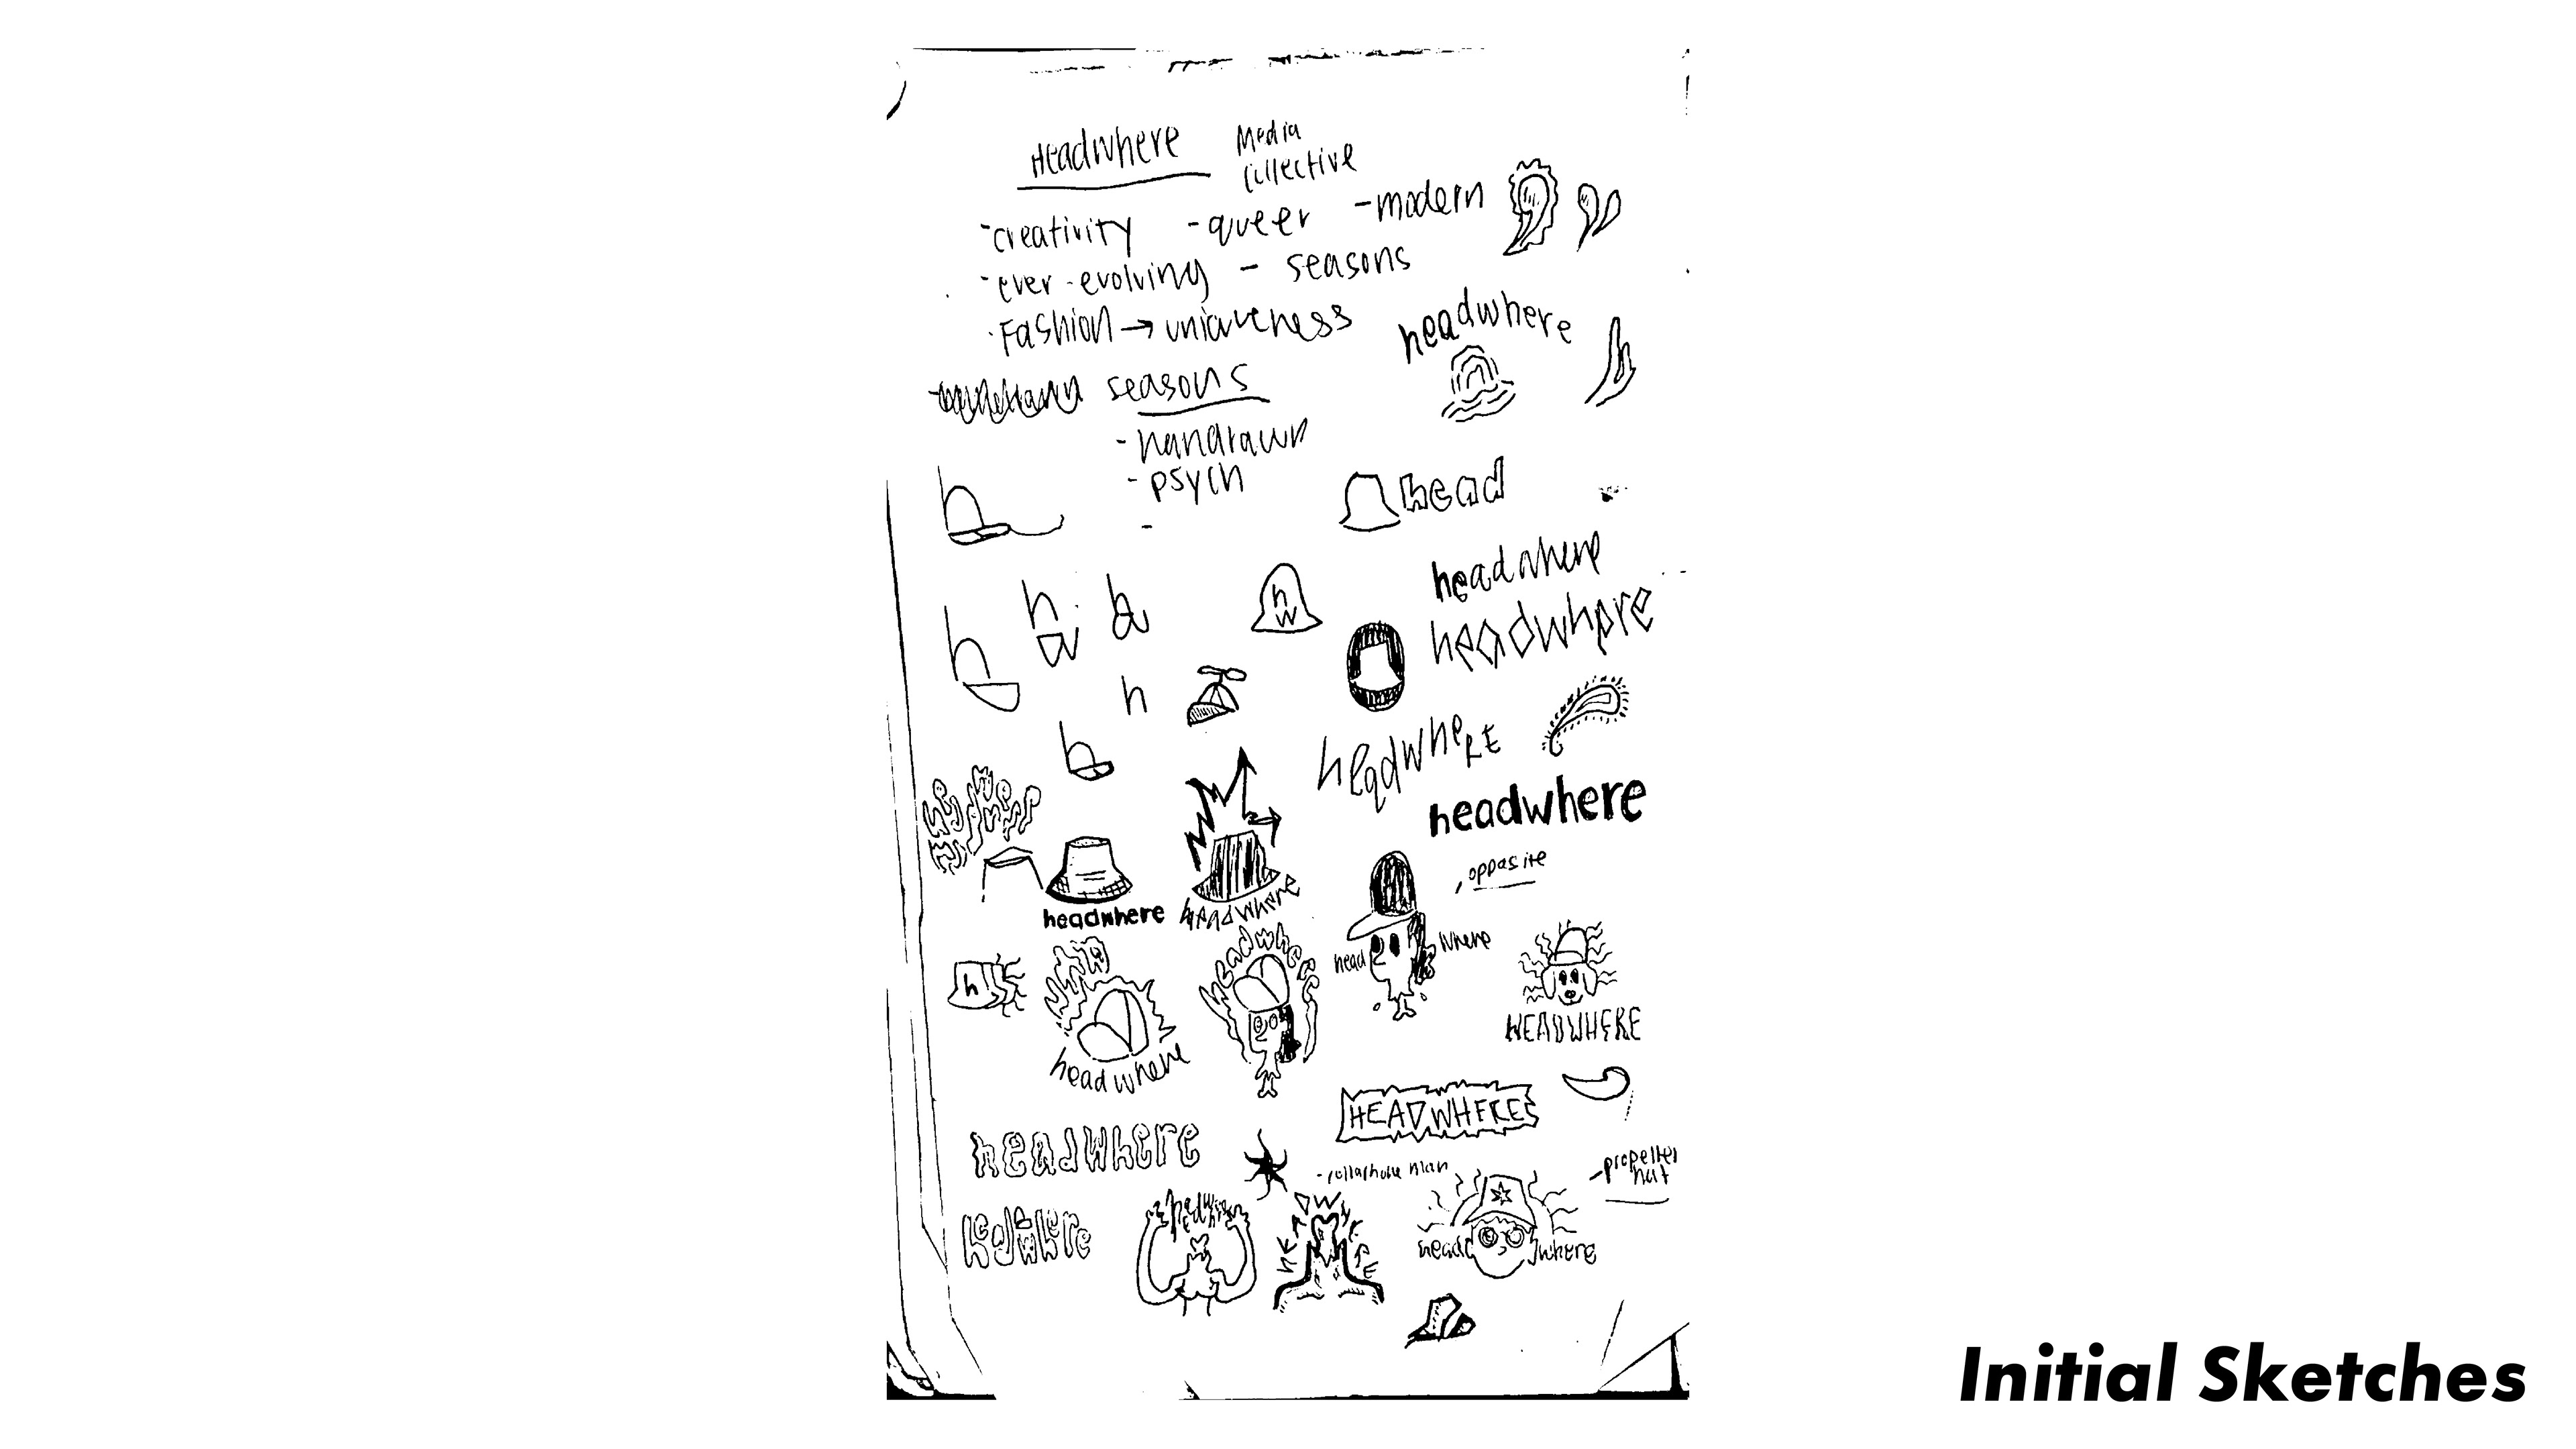 Headwhere
Media
Collective
-creativity -queer -modern
-ever-evolving - seasons
-Fashion → uniqueness
headwhere
h
seasons
-handrawn
-psych
-
head
headwhere
h
w
headwhere
h
a
b
h
h
b
headwhere
headwhere
, opposite
headwhere
headwhere
head where
headwhere
h
headwhere
HEADWHERE
HEADWHERE
headwhere
-propeller
hat
headwhere
headwhere
head where
Initial Sketches